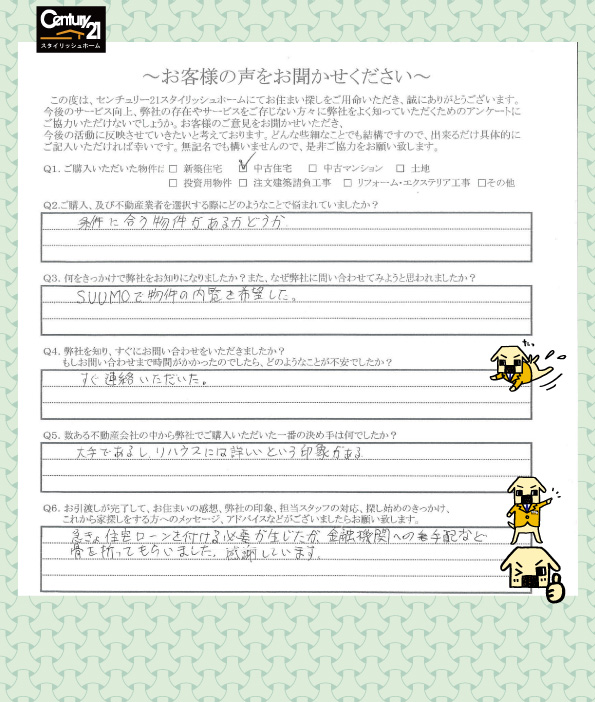 Century 21
スタイリッシュホーム
～お客様の声をお聞かせください～
この度は、センチュリー21スタイリッシュホームにてお住まい探しをご用命いただき、誠にありがとうございます。
今後のサービス向上、弊社の存在やサービスをご存じない方々に弊社をよく知っていただくためのアンケートに
ご協力いただけないでしょうか。お客様のご意見をお聞かせいただき、
今後の活動に反映させていきたいと考えております。どんな些細なことでも結構ですので、出来るだけ具体的に
ご記入いただければ幸いです。無記名でも構いませんので、是非ご協力をお願い致します。
Q1. ご購入いただいた物件は □ 新築住宅 ☑ 中古住宅 □ 中古マンション □ 土地
□ 投資用物件 □ 注文建築請負工事 □ リフォーム・エクステリア工事 □その他
Q2.ご購入、及び不動産業者を選択する際にどのようなことで悩まれていましたか？
条件に合う物件があるかどうか
Q3. 何をきっかけで弊社をお知りになりましたか？また、なぜ弊社に問い合わせてみようと思われましたか？
SUUMOで物件の内覧を希望した。
Q4. 弊社を知り、すぐにお問い合わせをいただきましたか？
もしお問い合わせまで時間がかかったのでしたら、どのようなことが不安でしたか？
すぐ連絡いただいた。
Q5. 数ある不動産会社の中から弊社でご購入いただいた一番の決め手は何でしたか？
大手であるし、リハウスには詳しいという印象がある
Q6. お引渡しが完了して、お住まいの感想、弊社の印象、担当スタッフの対応、探し始めのきっかけ、
これから家探しをする方へのメッセージ、アドバイスなどがございましたらお願い致します。
急きょ住宅ローンを付ける必要が生じたが、金融機関への手配など
骨を折ってもらいました。感謝しています。